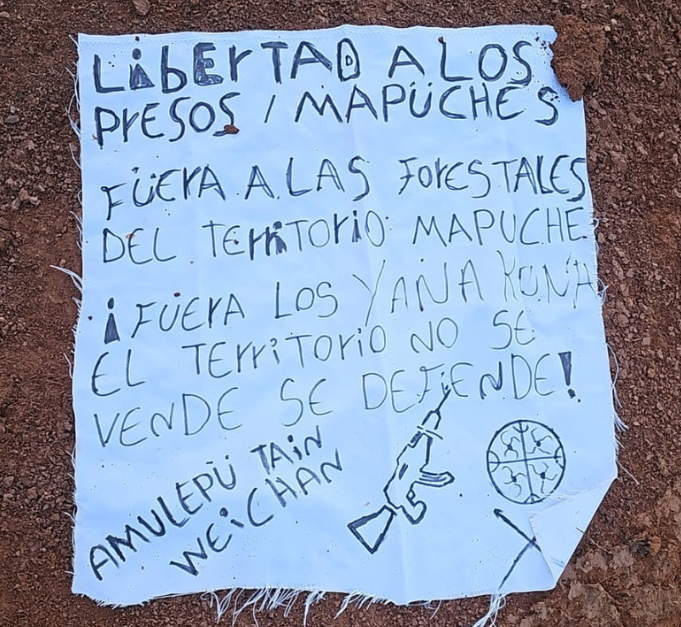 LiBERTAD A LOS
PRESOS / MAPUCHES
FUERA A LAS FORESTALES
DEL TERRiTORiO MAPUCHE
¡FUERA LOS YANA KONA
EL TERRiTORiO NO SE
VENDE SE DEFiENDE!
AMULEPU TAiN
WEiCHAN